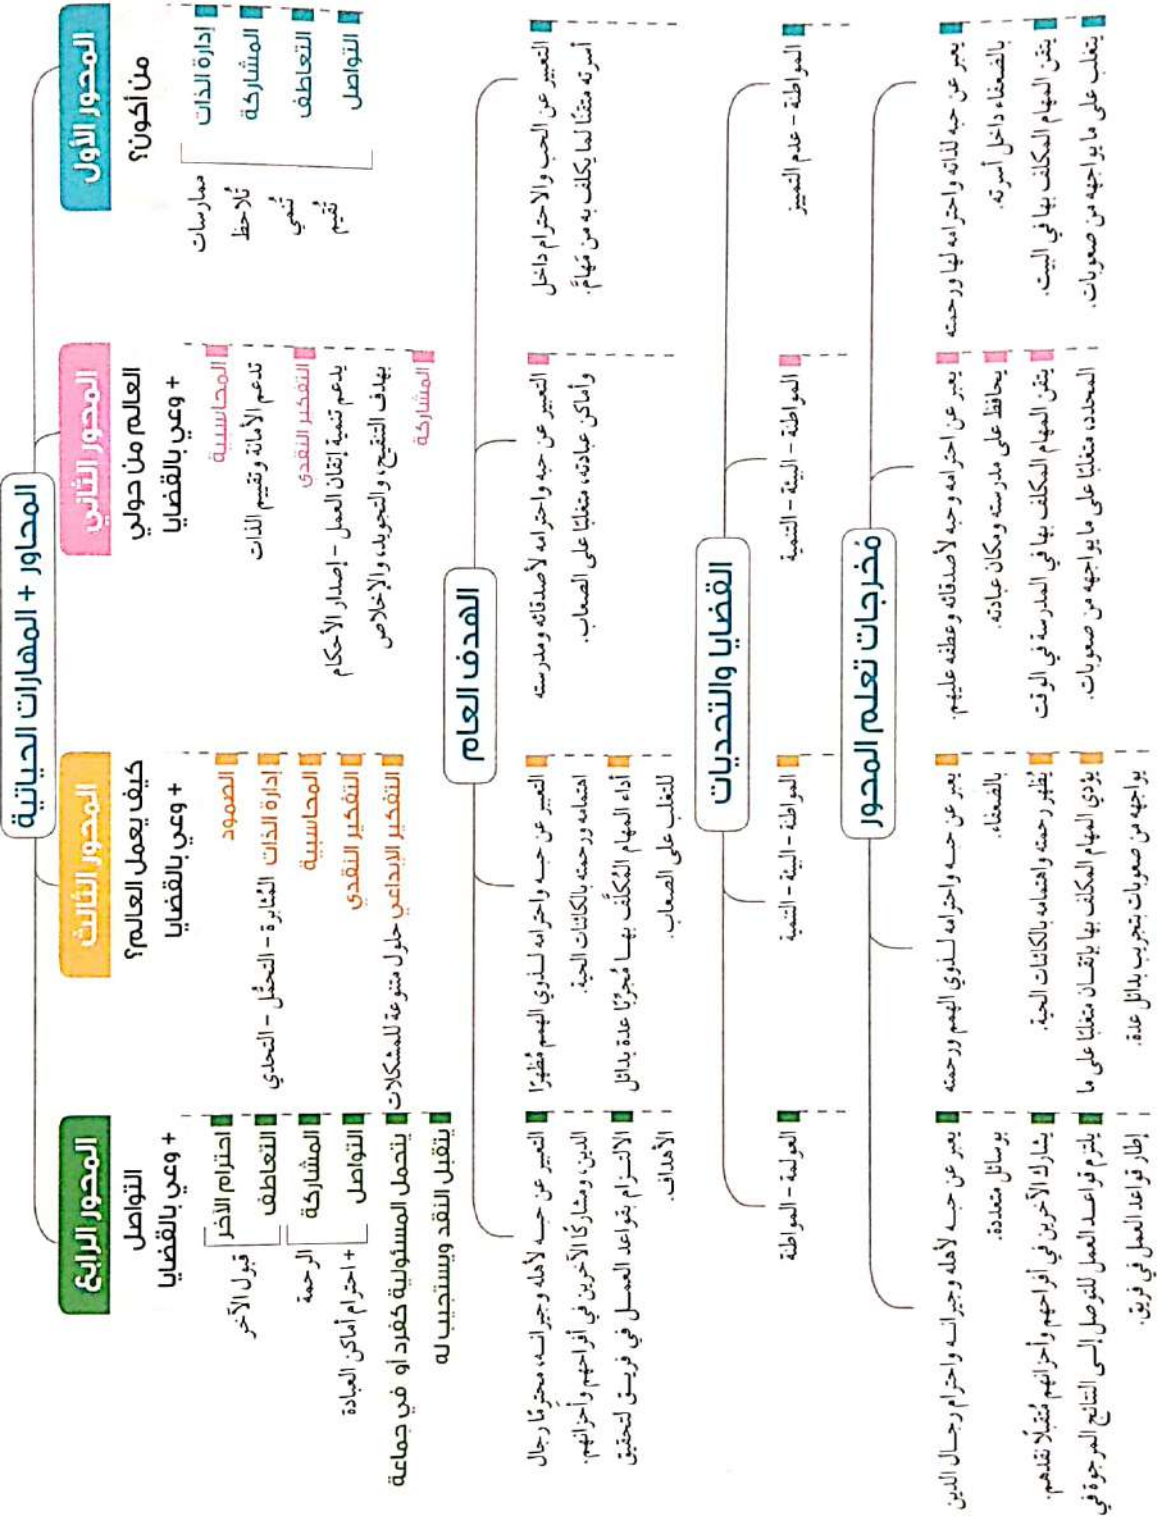 المحاور + المهارات الحياتية
المحور الأول
من أكون؟
إدارة الذات
المشاركة
التعاطف
التواصل
ممارسات
تُلاحظ
تُنمي
تُقيم
المحور الثاني
العالم من حولي
+ وعي بالقضايا
المحاسبية
تدعم الأمانة وتقييم الذات
التفكير النقدي
يدعم تنمية إتقان العمل - إصدار الأحكام
بهدف التنقيح، والتجويد، والإخلاص
المشاركة
المحور الثالث
كيف يعمل العالم؟
+ وعي بالقضايا
الصمود
إدارة الذات المُثابرة - التحمُّل - التحدي
المحاسبية
التفكير النقدي
التفكير الإبداعي حلول متنوعة للمشكلات
المحور الرابع
التواصل
+ وعي بالقضايا
احترام الآخر
التعاطف
قبول الآخر
المشاركة
التواصل
الرحمة
+ احترام أماكن العبادة
يتحمل المسئولية كفرد أو في جماعة
يتقبل النقد ويستجيب له
الهدف العام
التعبير عن الحب والاحترام داخل
أسرته متقنًا لما يكلف به من مَهامَّ.
التعبير عن حبه واحترامه لأصدقائه ومدرسته
وأماكن عبادته، متغلبًا على الصعاب.
التعبير عن حبه واحترامه لذوي الهمم مُظهرًا
اهتمامه ورحمته بالكائنات الحية.
أداء المهام المُكلَّف بها مُجربًا عدة بدائل
للتغلب على الصعاب.
التعبير عن حبه لأهله وجيرانه، محترمًا رجال
الدين، ومشاركًا الآخرين في أفراحهم وأحزانهم.
الالتزام بقواعد العمل في فريق لتحقيق
الأهداف.
القضايا والتحديات
المواطنة - عدم التمييز
المواطنة - البيئة - التنمية
المواطنة - البيئة - التنمية
العولمة - المواطنة
مُخرجات تعلم المحور
يعبر عن حبه لذاته واحترامه لها ورحمته
بالضعفاء داخل أسرته.
يتقن المهام المكلف بها في البيت.
يتغلب على ما يواجهه من صعوبات.
يعبر عن احترامه وحبه لأصدقائه وعطفه عليهم.
يحافظ على مدرسته ومكان عبادته.
يتقن المهام المكلف بها في المدرسة في الوقت
المحدد، متغلبًا على ما يواجهه من صعوبات.
يعبر عن حبه واحترامه لذوي الهمم ورحمته
بالضعفاء.
يُظهر رحمته واهتمامه بالكائنات الحية.
يؤدي المهام المكلف بها بإتقان متغلبًا على ما
يواجهه من صعوبات بتجريب بدائل عدة.
يعبر عن حبه لأهله وجيرانه واحترام رجال الدين
بوسائل متعددة.
يشارك الآخرين في أفراحهم وأحزانهم مُتقبلًا نقدهم.
يلتزم قواعد العمل للتوصل إلى النتائج المرجوة في
إطار قواعد العمل في فريق.